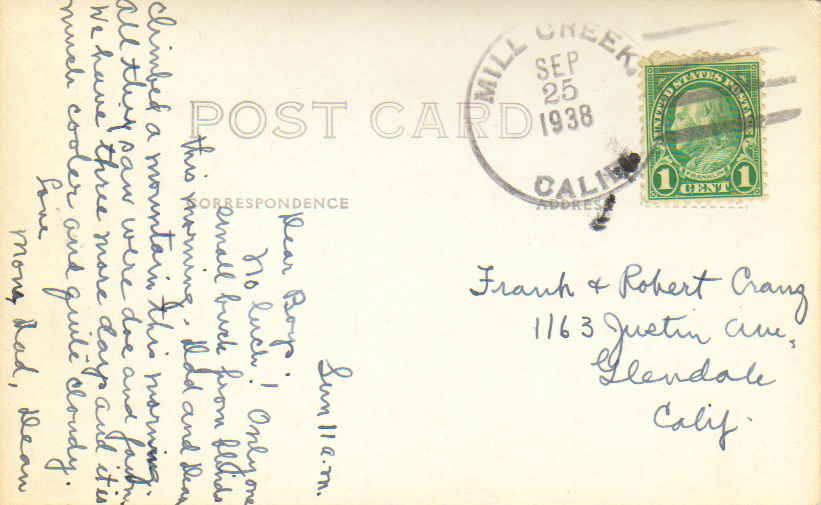 POST CARD
CORRESPONDENCE
ADDRESS
MILL CREEK,
SEP
25
1938
CALIF.
UNITED STATES POSTAGE
FRANKLIN
1 CENT 1
Sun 11 a.m.
Dear Boys
No luck! Only one
small buck from blinds
this morning. Dad and Dean
climbed a mountain this morning.
all they saw were doe and fawn.
We have three more days and it is
much cooler and quite cloudy.
Love
Mom, Dad, Dean
Frank + Robert Crang
1163 Justin Ave,
Glendale
Calif.